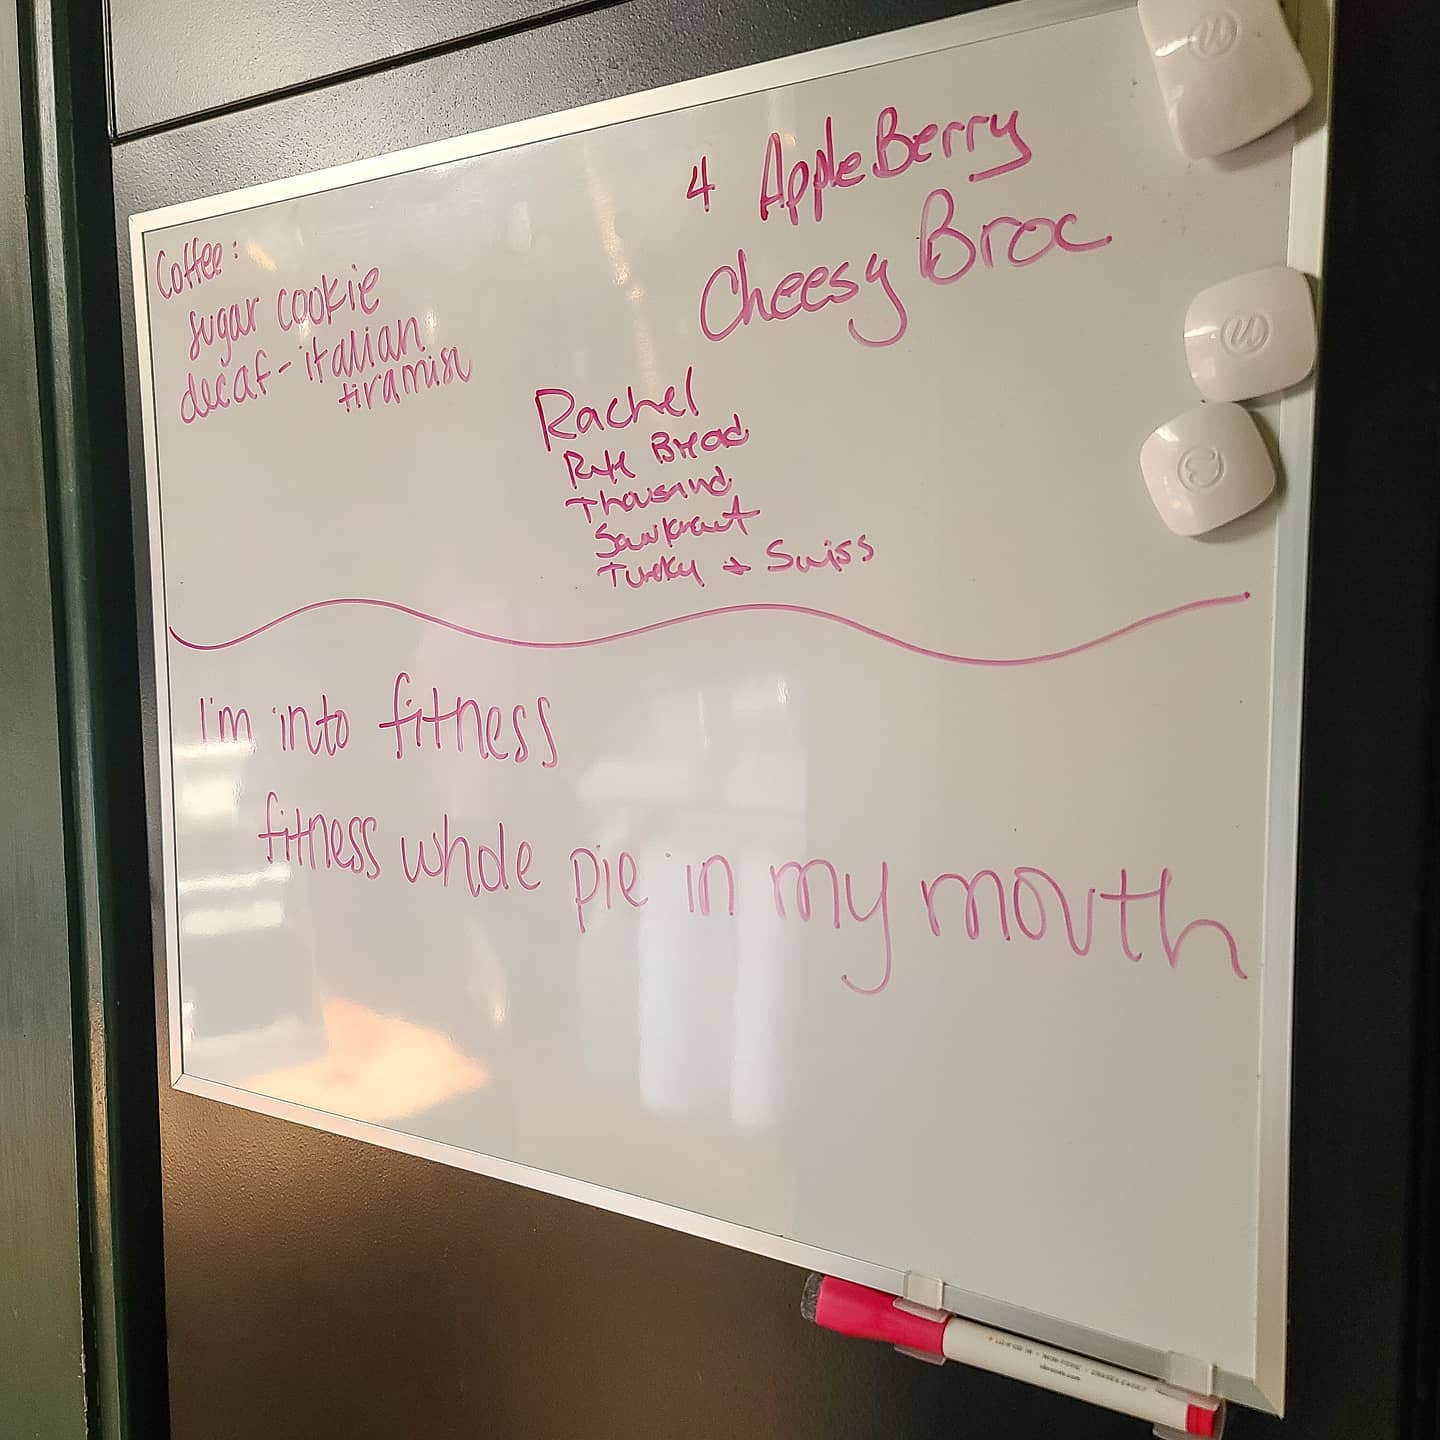 Coffee:
sugar cookie
decaf - italian
tiramisu
4 AppleBerry
Cheesy Broc
Rachel
Rye Bread
Thousand
Saurkraut
Turky + Swiss
I'm into fitness
fitness whole pie in my mouth